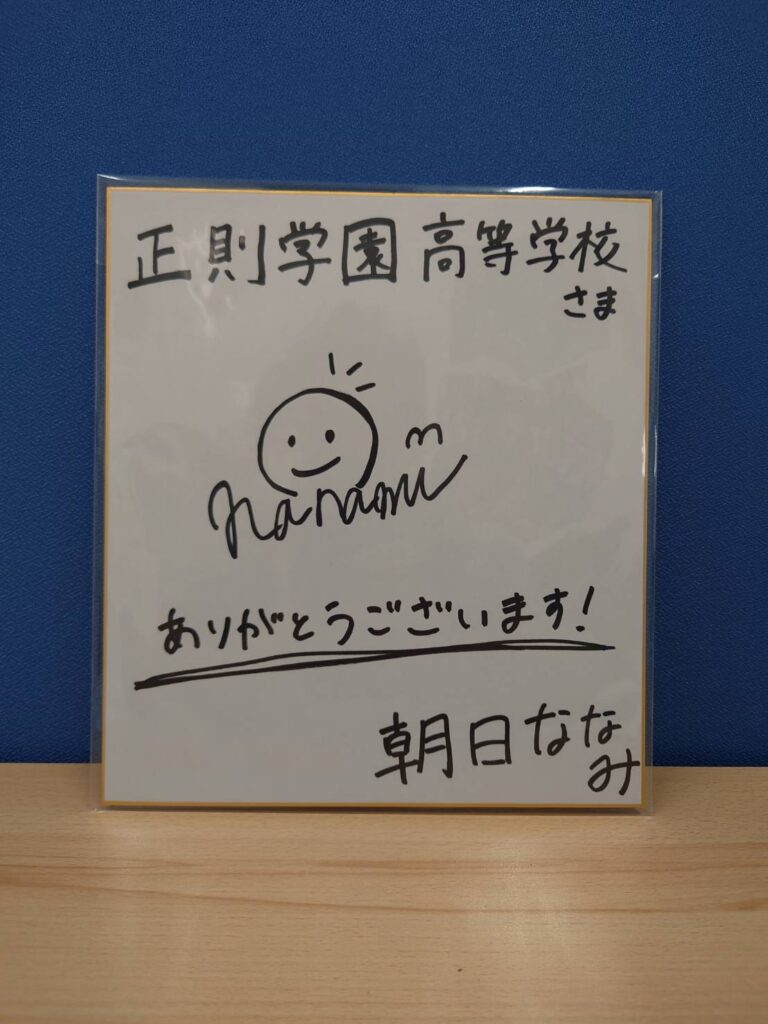 正則学園高等学校
さま
nanami
ありがとうございます!
朝日ななみ